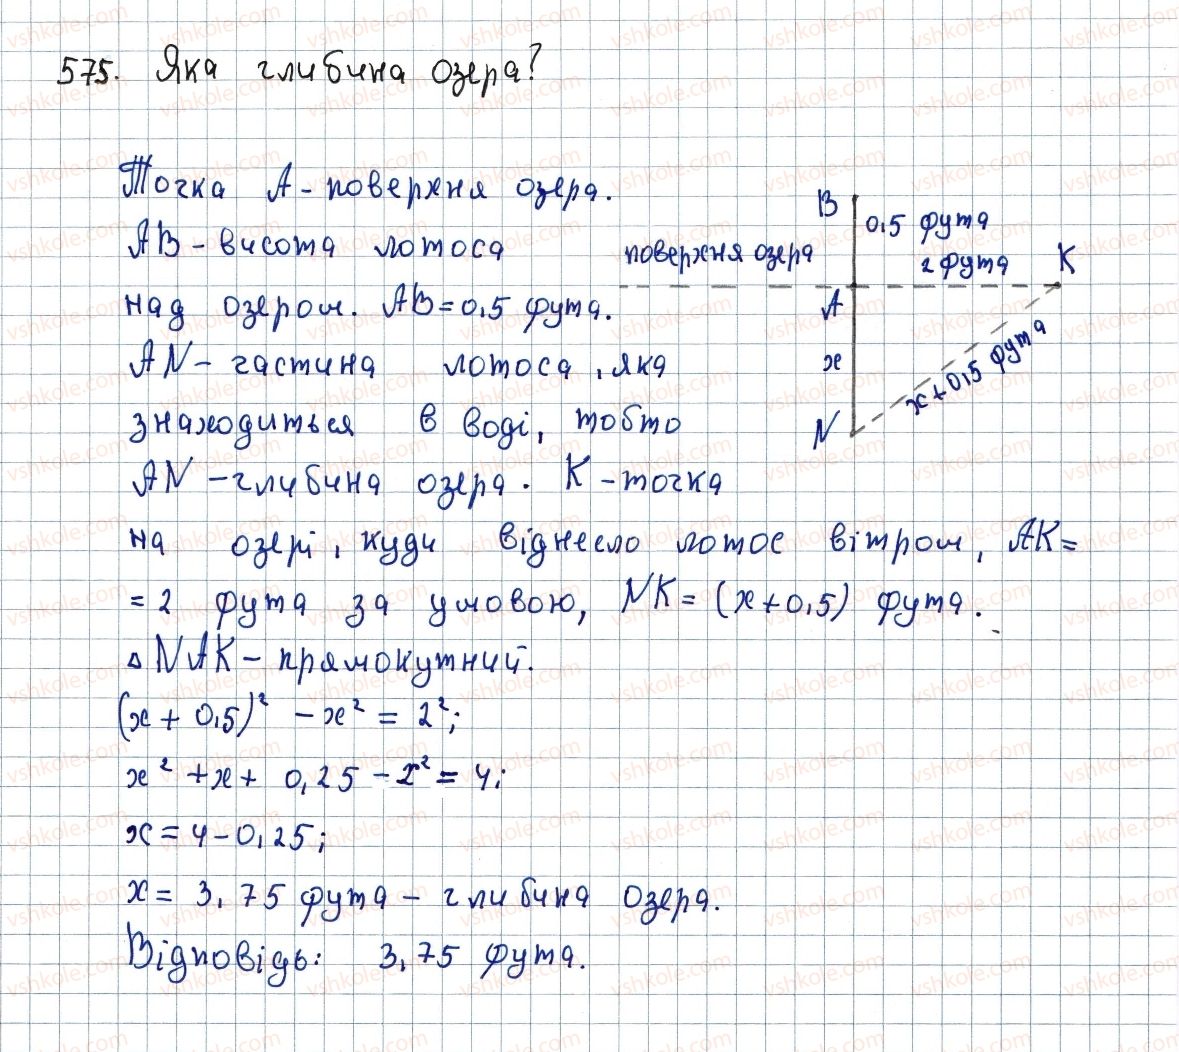 575. Яка глибина озера?
Точка A - поверхня озера.
AB - висота лотоса
над озером. AB = 0,5 фута.
AN - частина лотоса, яка
знаходиться в воді, тобто
AN - глибина озера. K - точка
на озері, куди віднесло лотос вітром, AK =
= 2 фута за умовою, NK = (x + 0,5) фута.
△ NAK - прямокутний.
(x + 0,5)² - x² = 2²;
x² + x + 0,25 - x² = 4;
x = 4 - 0,25;
x = 3,75 фута - глибина озера.
Відповідь: 3,75 фута.
B
0,5 фута
поверхня озера
2 фута
K
A
x
x + 0,5 фута
N
vshkole.com